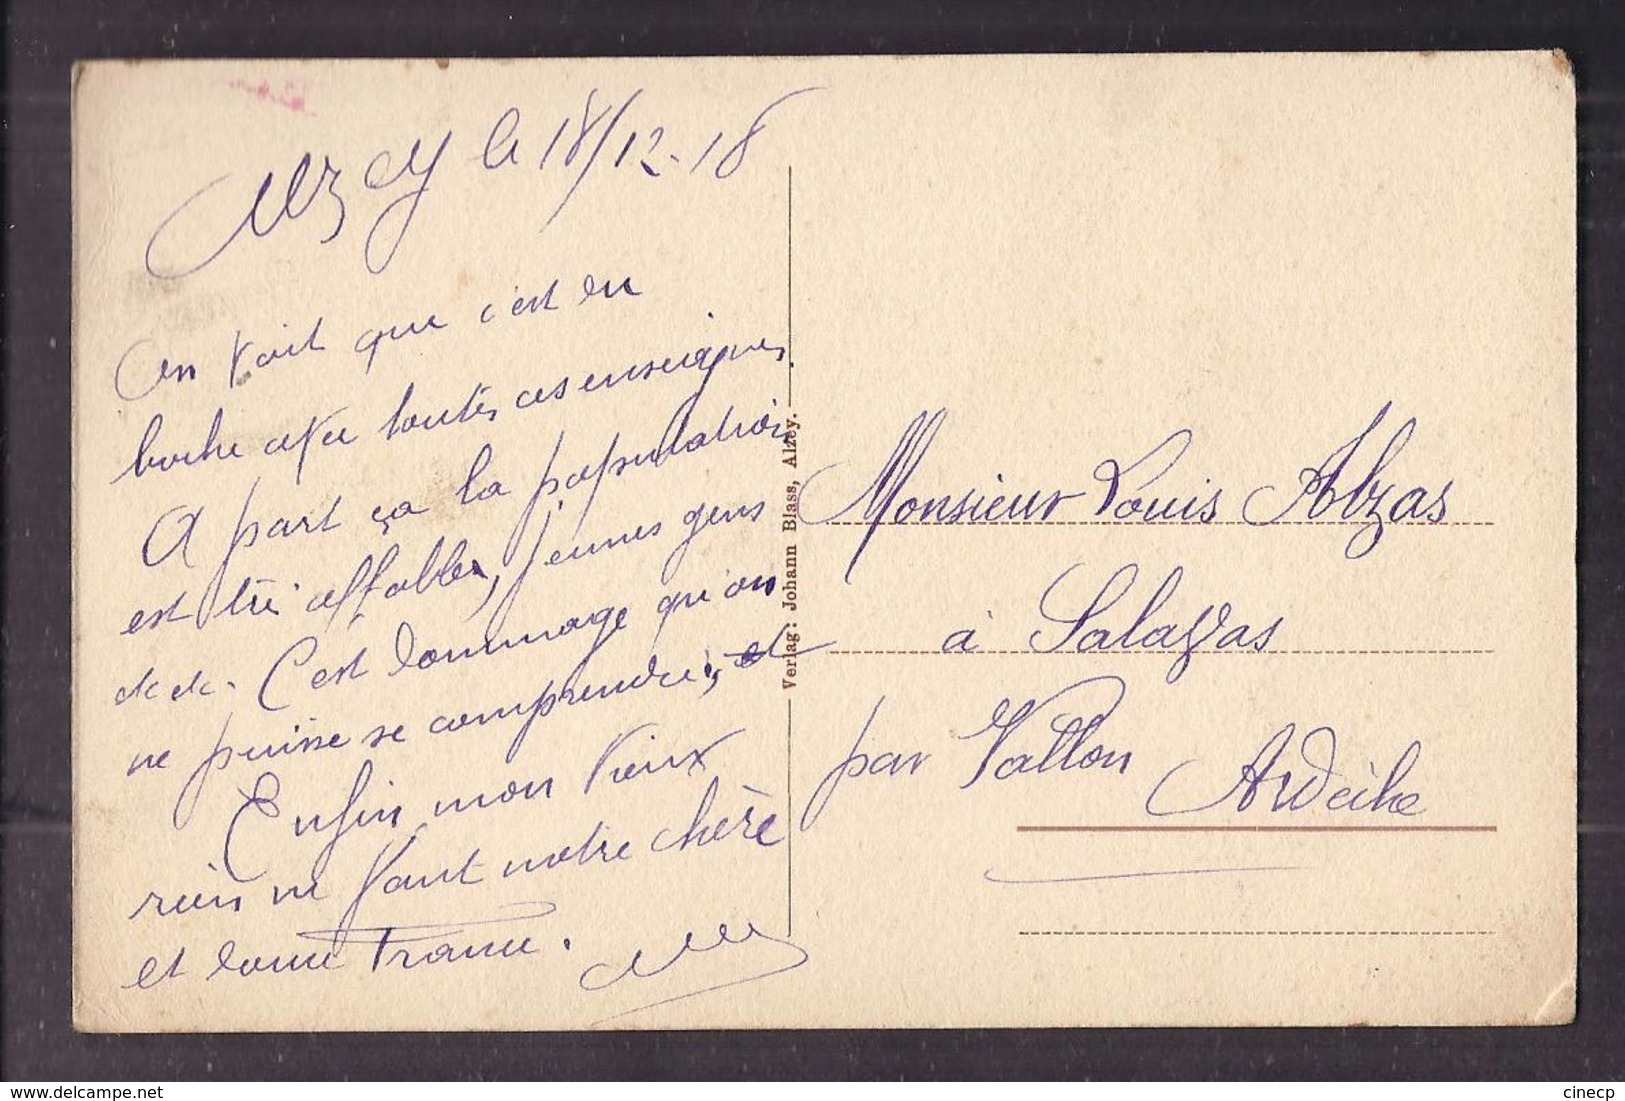 Alzey le 18/12-18
On voit que c'est du
boche avec toutes ces enseignes.
A part ça la population
est très affable, jeunes gens
etc etc. C'est dommage qu'on
ne puisse se comprendre, et
Enfin mon vieux
rien ne vaut notre chère
et douce France.
Verlag: Johann Blass, Alzey.
Monsieur Louis Alzas
à Salavas
par Vallon
Ardèche
delcampe.net
cinecp